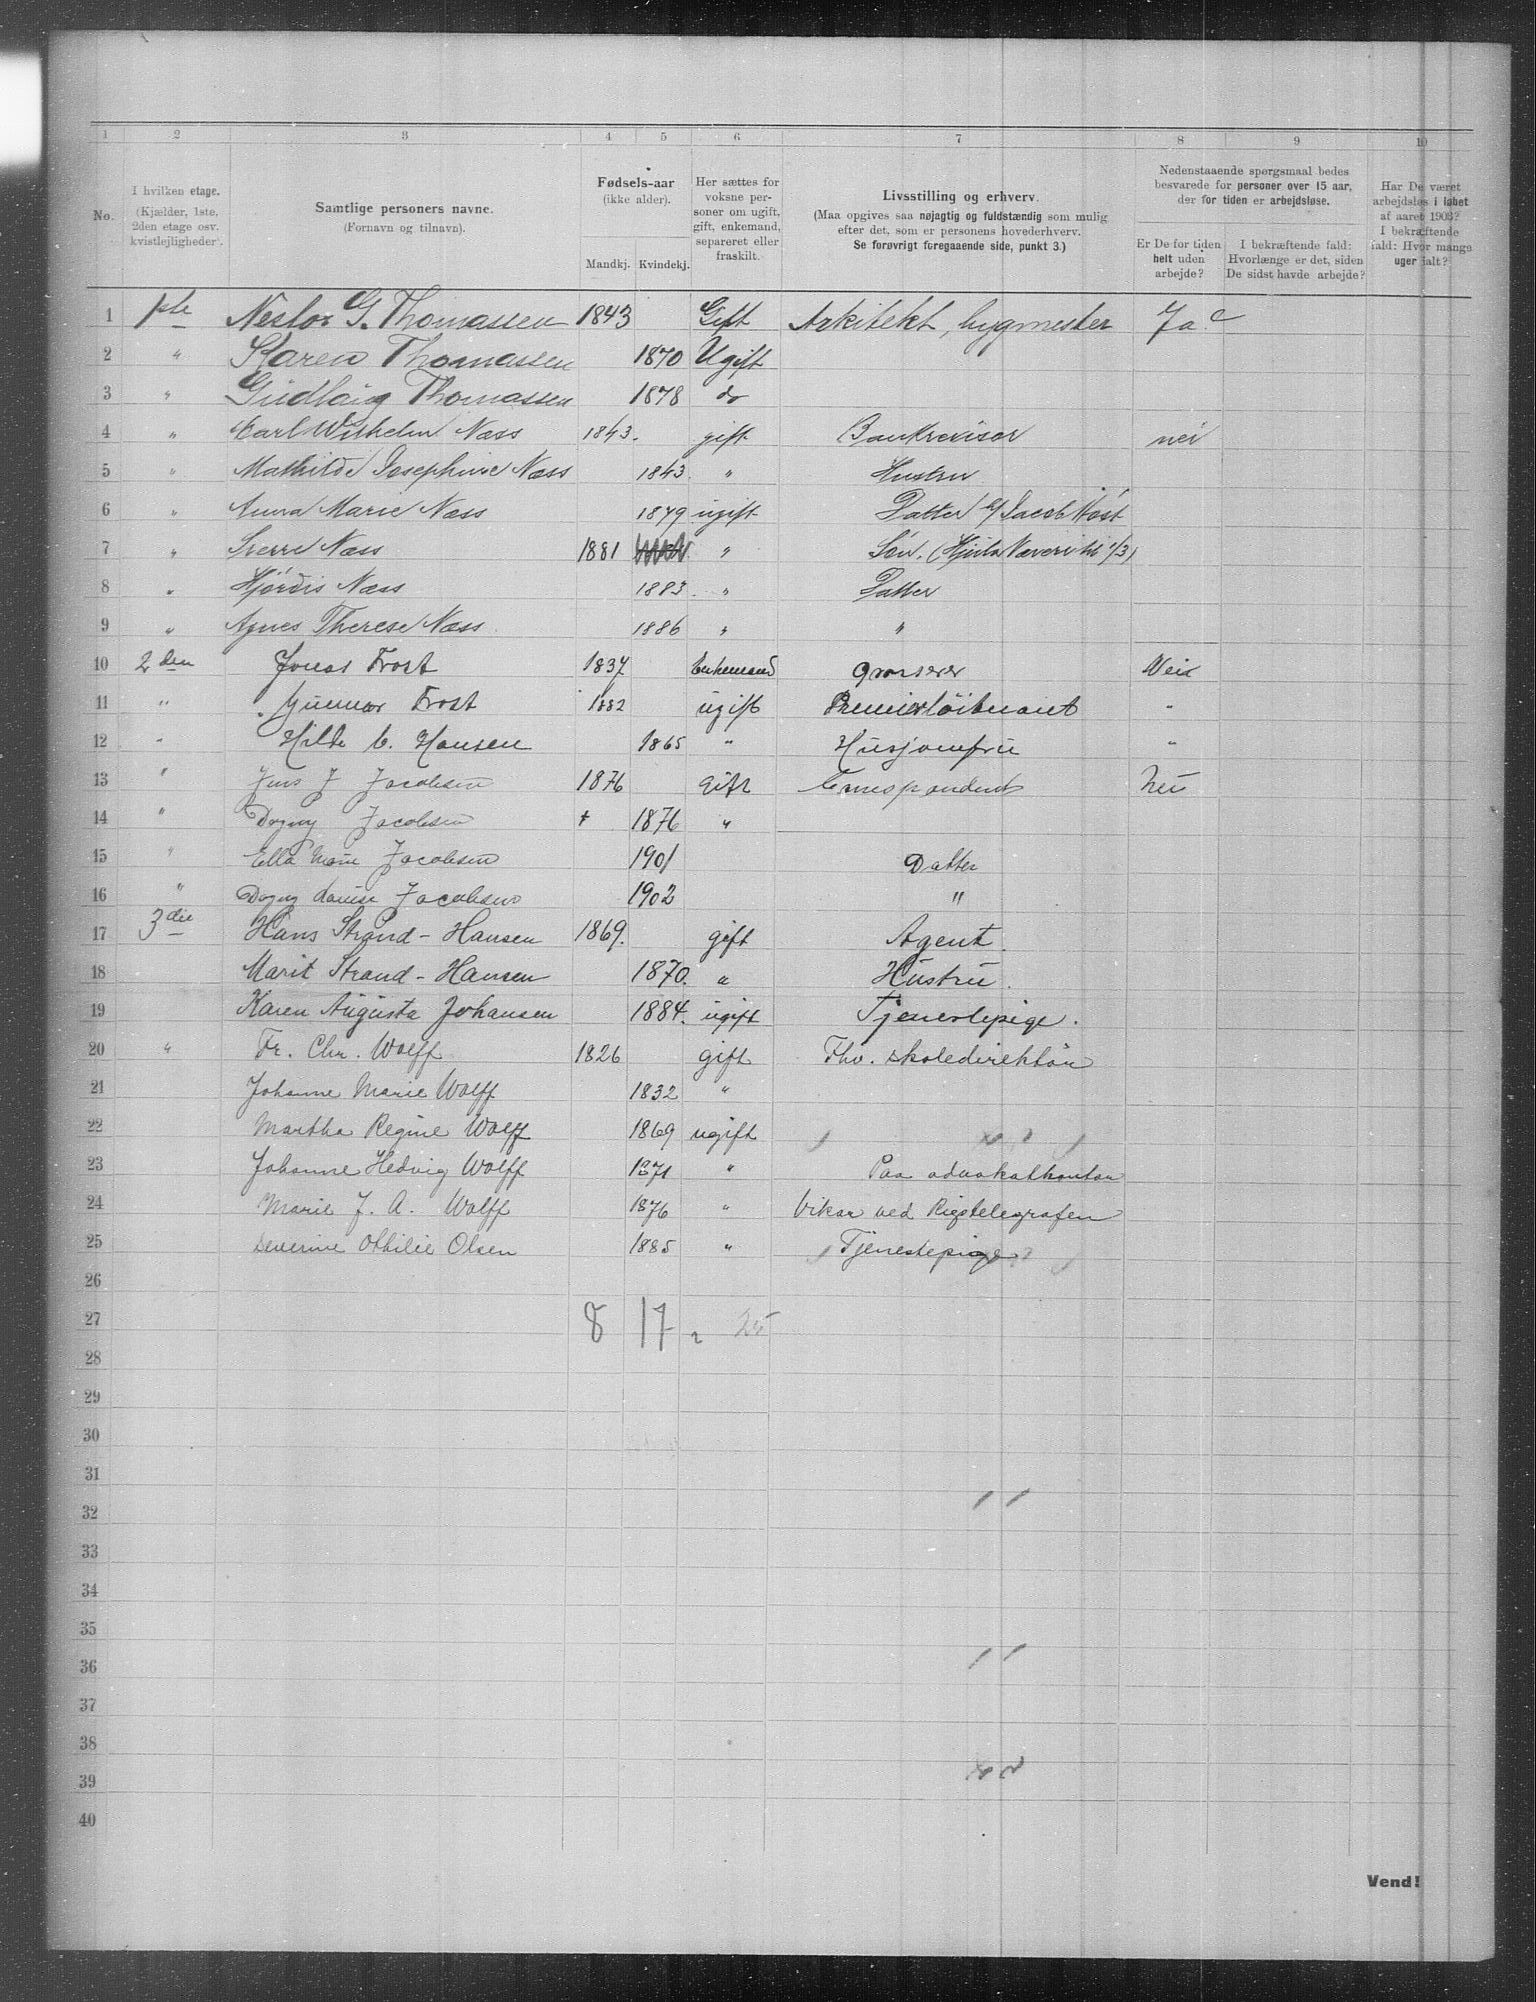 1 2 3 4 5 6 7 8 9 10
No.
I hvilken etage.
(Kjælder, 1ste,
2den etage osv.
kvistlejligheder).
Samtlige personers navne.
(Fornavn og tilnavn).
Fødsels-aar
(ikke alder).
Mandkj. Kvindekj.
Her sættes for
voksne per-
soner om ugift,
gift, enkemand,
separeret eller
fraskilt.
Livsstilling og erhverv.
(Maa opgives saa nøjagtig og fuldstændig som mulig
efter det, som er personens hovederhverv.
Se forøvrigt foregaaende side, punkt 3.)
Nedenstaaende spørgsmaal bedes
besvarede for personer over 15 aar,
der for tiden er arbejdsløse.
Er De for tiden
helt uden
arbejde?
I bekræftende fald:
Hvorlænge er det, siden
De sidst havde arbejde?
Har De været
arbejdsløs i løbet
af aaret 1903?
I bekræftende
fald: Hvor mange
uger ialt?
1 1ste Nestor G. Thomassen 1843 Gift Arkitekt, bygmester Ja
2 " Karen Thomassen 1870 Ugift
3 " Gudlaug Thomassen 1878 do
4 " Carl Wilhelm Næss 1843. gift Bankrevisor nei
5 " Mathilde Josephine Næss 1843. " Hustru
6 " Anna Marie Næss 1879 ugift Datter Jacob
7 " Sverre Næss 1881 " Søn.
8 " Hjørdis Næss 1883 " Datter
9 " Agnes Therese Næss 1886 " "
10 2den Jonas Frost 1837 Enkemand Grosserer Nei
11 " Gunnar Frost 1882 ugift Premierløitnant "
12 " Hilda C. Hansen 1865 " Husjomfru "
13 " Jens J Jacobsen 1876 Gift Correspondent Nei
14 " Dagny Jacobsen + 1876 "
15 " Ella Marie Jacobsen 1901 Datter
16 " Dagny Louise Jacobsen 1902 "
17 3die Hans Strand-Hansen 1869. gift Agent.
18 Marit Strand-Hansen 1870. " Hustru.
19 Karen Augusta Johansen 1884. ugift Tjenestepige.
20 " Fr. Chr. Wolff 1826 gift Fhv. skoledirektør
21 Johanne Marie Wolff 1832 "
22 Martha Regine Wolff 1869 ugift
23 Johanne Hedvig Wolff 1871 " Paa advokatkontor
24 Marie J. A. Wolff 1876 " Vikar ved Rigstelegrafen
25 Severine Othilie Olsen 1885 " Tjenestepige
26
27 8 17 25
28
29
30
31
32
33
34
35
36
37
38
39
40
Vend!